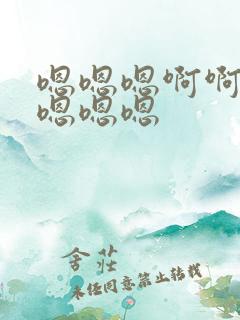 嗯嗯嗯啊啊
嗯嗯嗯
舍茊
未经同意禁止转载